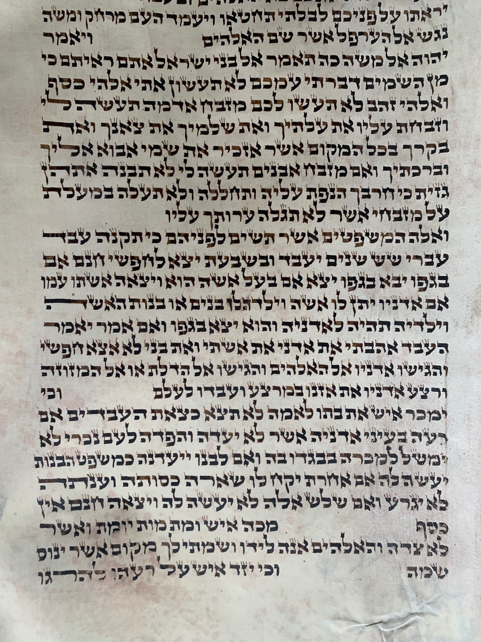 יראתו על פניכם לבלתי תחטאו ויעמד העם מרחק ומשה
נגש אל הערפל אשר שם האלהים ויאמר
יהוה אל משה כה תאמר אל בני ישראל אתם ראיתם כי
מן השמים דברתי עמכם לא תעשון אתי אלהי כסף
ואלהי זהב לא תעשו לכם מזבח אדמה תעשה לי
וזבחת עליו את עלתיך ואת שלמיך את צאנך ואת
בקרך בכל המקום אשר אזכיר את שמי אבוא אליך
וברכתיך ואם מזבח אבנים תעשה לי לא תבנה אתהן
גזית כי חרבך הנפת עליה ותחללה ולא תעלה במעלת
על מזבחי אשר לא תגלה ערותך עליו
ואלה המשפטים אשר תשים לפניהם כי תקנה עבד
עברי שש שנים יעבד ובשבעת יצא לחפשי חנם אם
בגפו יבא בגפו יצא אם בעל אשה הוא ויצאה אשתו עמו
אם אדניו יתן לו אשה וילדה לו בנים או בנות האשה
וילדיה תהיה לאדניה והוא יצא בגפו ואם אמר יאמר
העבד אהבתי את אדני את אשתי ואת בני לא אצא חפשי
והגישו אדניו אל האלהים והגישו אל הדלת או אל המזוזה
ורצע אדניו את אזנו במרצע ועבדו לעלם וכי
ימכר איש את בתו לאמה לא תצא כצאת העבדים אם
רעה בעיני אדניה אשר לא יעדה והפדה לעם נכרי לא
ימשל למכרה בבגדו בה ואם לבנו ייעדנה כמשפט הבנות
יעשה לה אם אחרת יקח לו שארה כסותה וענתה
לא יגרע ואם שלש אלה לא יעשה לה ויצאה חנם אין
כסף מכה איש ומת מות יומת ואשר
לא צדה והאלהים אנה לידו ושמתי לך מקום אשר ינוס
שמה וכי יזד איש על רעהו להרגו